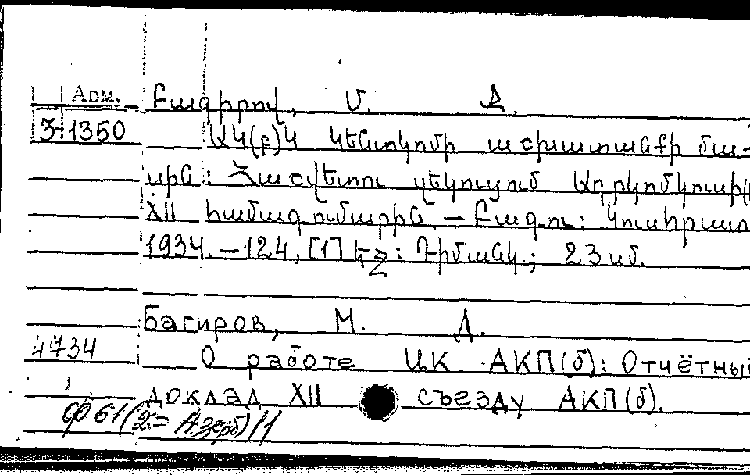 Арм. Բագիրով, Մ. Ջ.
3-1350 ԱԿ(բ)Կ Կենտկոմի աշխատանքի մա-
սին: Հաշվետու զեկուցում
XII համագումարին. — Բագու: Կուսհրատ
1934. — 124, [1] էջ: Դիմանկ.; 23 սմ.
Багиров, М. Д.
4734 О работе ЦК АКП(б): Отчётный
доклад XII съезду АКП(б).
ф 61(2=Азерб)11